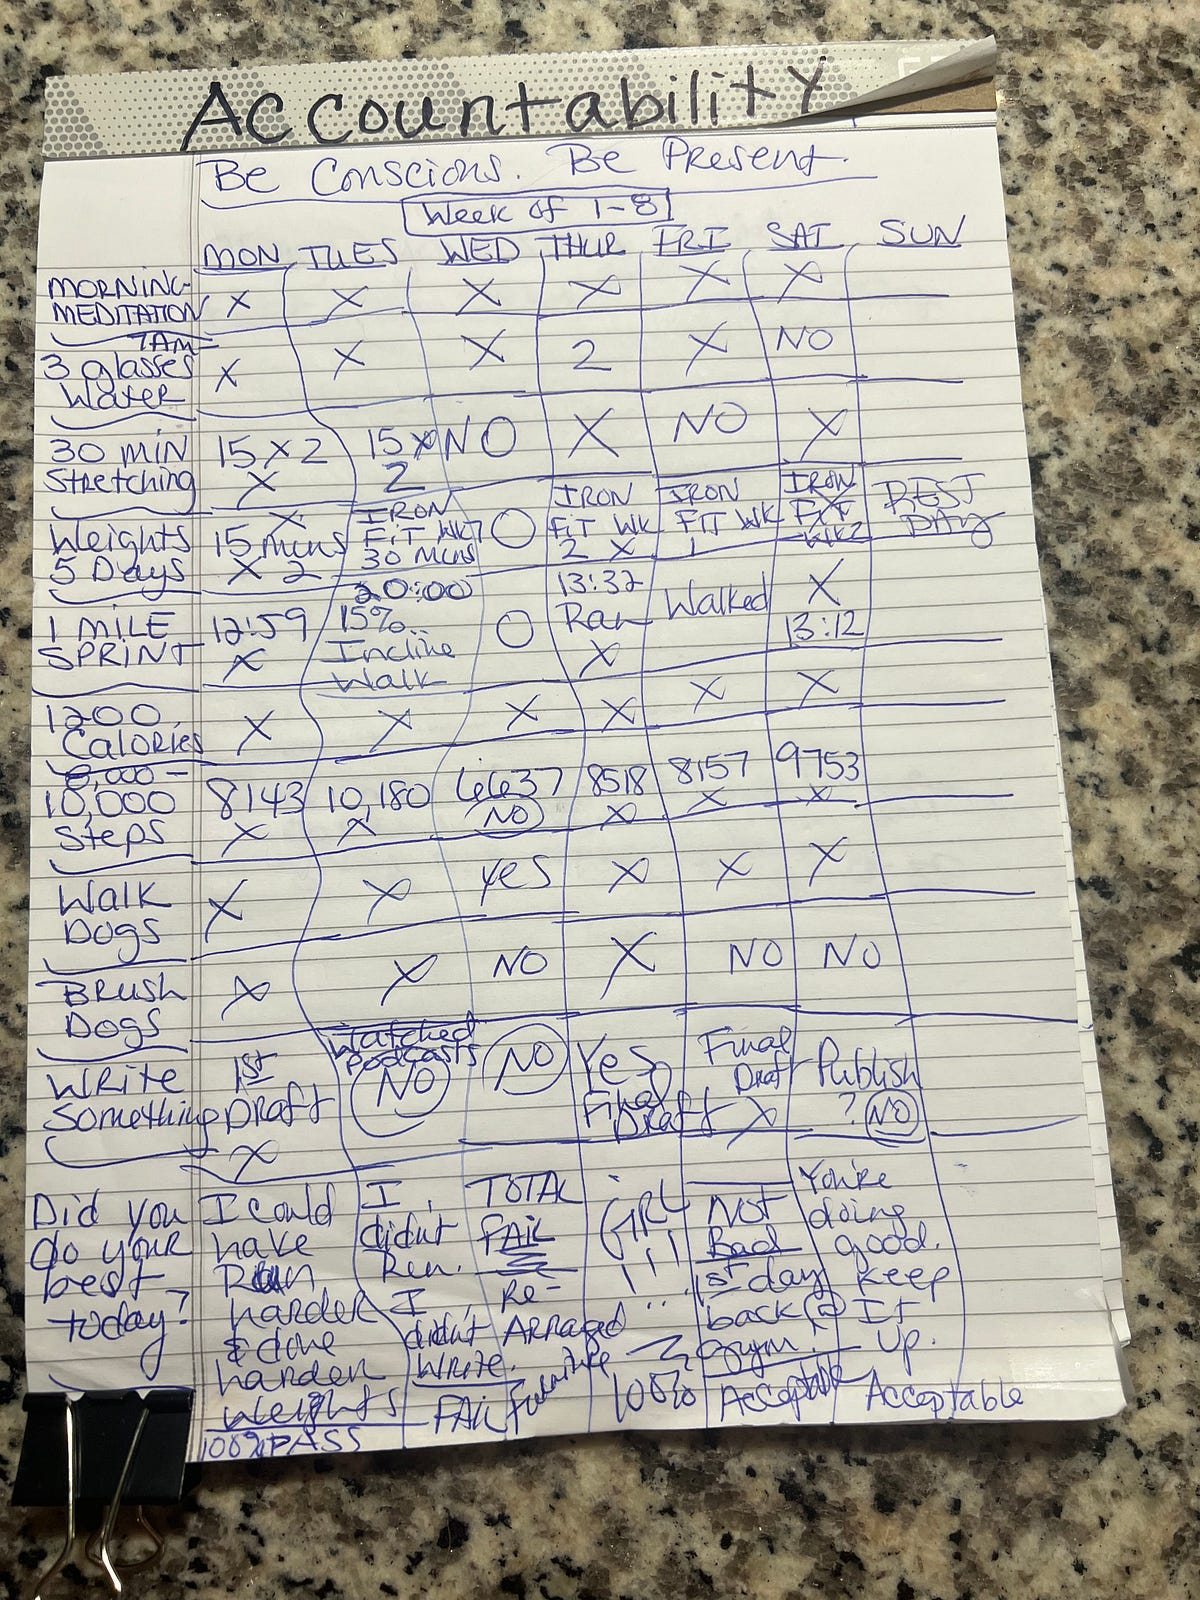 Accountability
Be Conscious. Be Present.
Week of 1-8
MON TUES WED THUR FRI SAT SUN
MORNING MEDITATION 7AM X X X X X X
3 glasses Water X X X 2 X NO
30 MIN Stretching 15 X 2 X 15 X 2 NO X NO X
Weights 5 Days X 15 mins X 2 IRON FiT WK1 30 Mins O IRON FiT WK 2 X IRON FIT WK 1 IRON FIT WK2 REST DAY
1 MILE SPRINT 12:59 X 20:00 15% Incline Walk O 13:32 Ran X Walked X 13:12
1200 Calories X X X X X X
8,000 - 10,000 Steps 8143 X 10,180 X 6637 NO 8518 X 8157 X 9753 X
Walk Dogs X X yes X X X
BRUSH Dogs X X NO X NO NO
WRITE Something 1st DRAFT X Watched podcasts NO NO Yes Final DRAFT Final DRAFT X Publish ? NO
Did you do your best today?
I could have Run harder & done harder weights 100% PASS
I didn't Run. I didn't WRITE. FAIL
TOTAL FAIL RE-ARRANGED Furniture
GIRL !!! ... 100%
NOT Bad 1st day back @ gym! Acceptable
You're doing good. Keep It Up. Acceptable